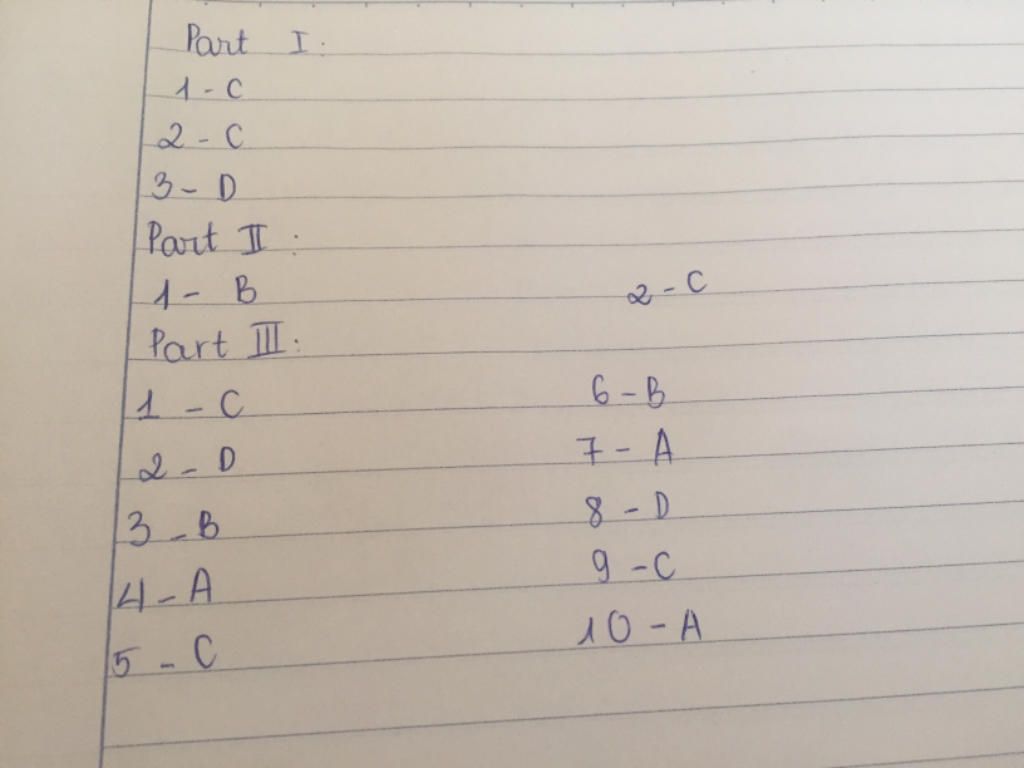 Part I:
1 - C
2 - C
3 - D
Part II :
1 - B 2 - C
Part III:
1 - C 6 - B
2 - D 7 - A
3 - B 8 - D
4 - A 9 - C
5 - C 10 - A